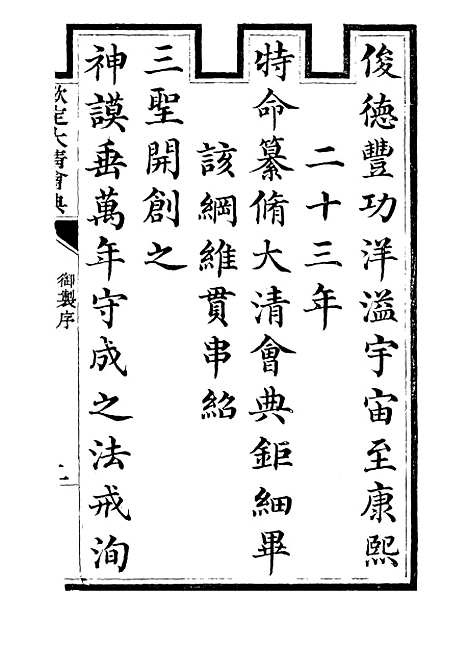 俊德豐功洋溢宇宙至康熙
二十三年
特命纂脩大清會典鉅細畢
該綱維貫串紹
三聖開創之
神謨垂萬年守成之法戒洵
欽定大清會典
御製序